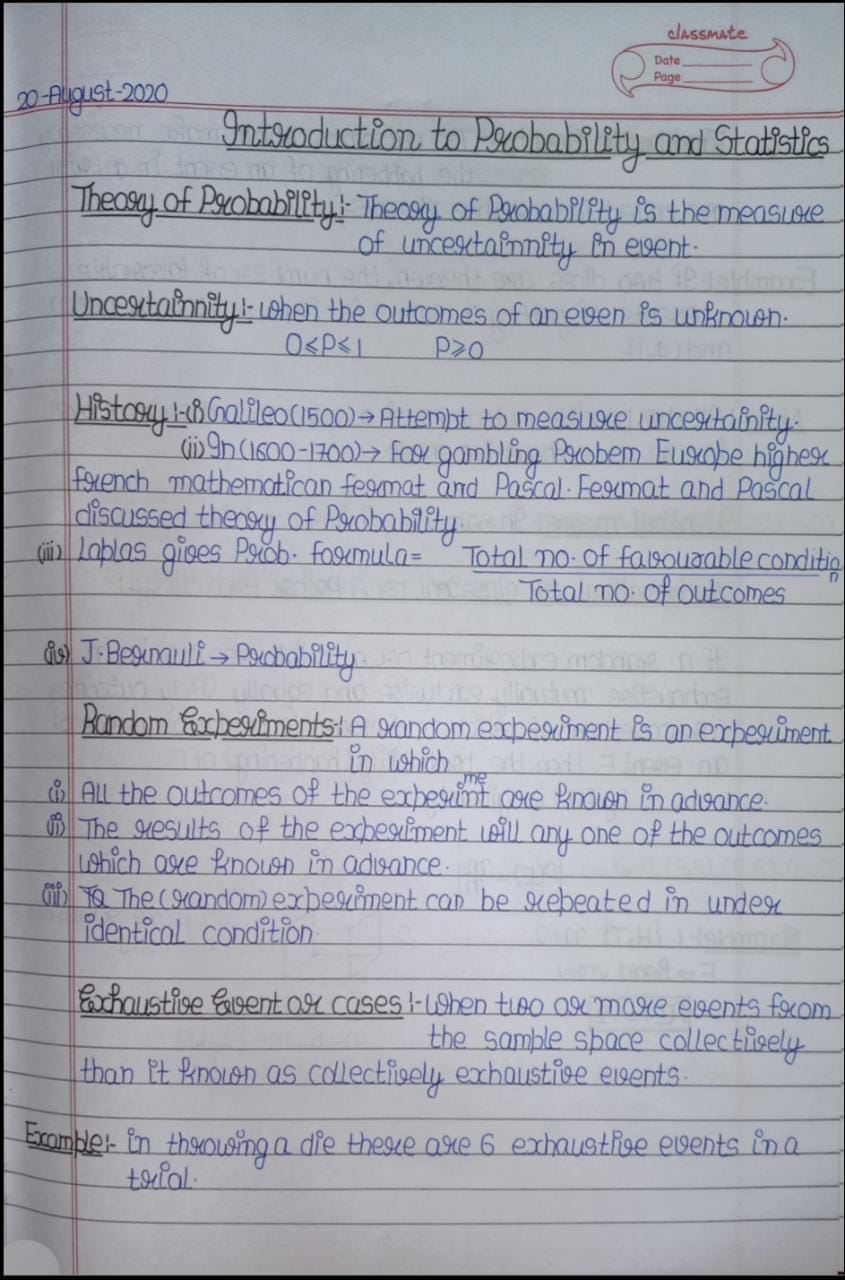 classmate
Date
Page
20-August-2020
Introduction to Probability and Statistics
Theory of Probability:- Theory of Probability is the measure
of uncertainnity in event.
Uncertainnity:- when the outcomes of an even is unknown.
0≤P≤1 P≥0
History:-(i) Galileo(1500)→Attempt to measure uncertainity.
(ii) In(1600-1700)→ For gambling Probem Europe higher
french mathematican fermat and Pascal. Fermat and Pascal
discussed theory of Probability
(iii) Laplas gives Prob. formula= Total no. of favourable condition
Total no. of outcomes
(iv) J.Bernauli → Probability
Random Experiments:- A random experiment is an experiment
in which
(i) All the outcomes of the experiment are known in advance.
(ii) The results of the experiment will any one of the outcomes
which are known in advance.
(iii) The (random) experiment can be repeated in under
identical condition
Exhaustive Event or cases:- when two or more events from
the sample space collectively
than it known as collectively exhaustive events.
Example:- in throwing a die there are 6 exhaustive events in a
trial.